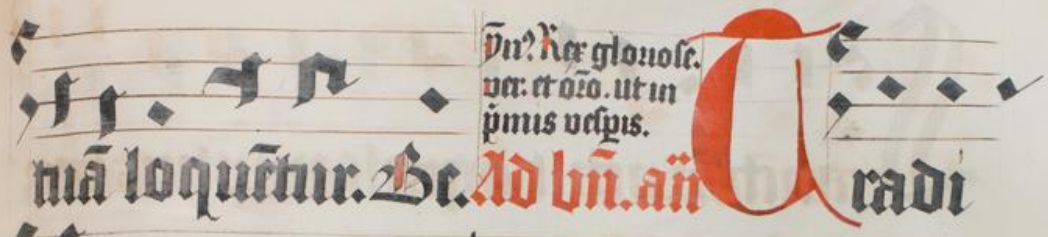 ẏn? Rex gloriose.
ver. et oro. ut in
p̄mis vespis.
tuā loquētur. Be. Ad bn̄. an̄ Tradi